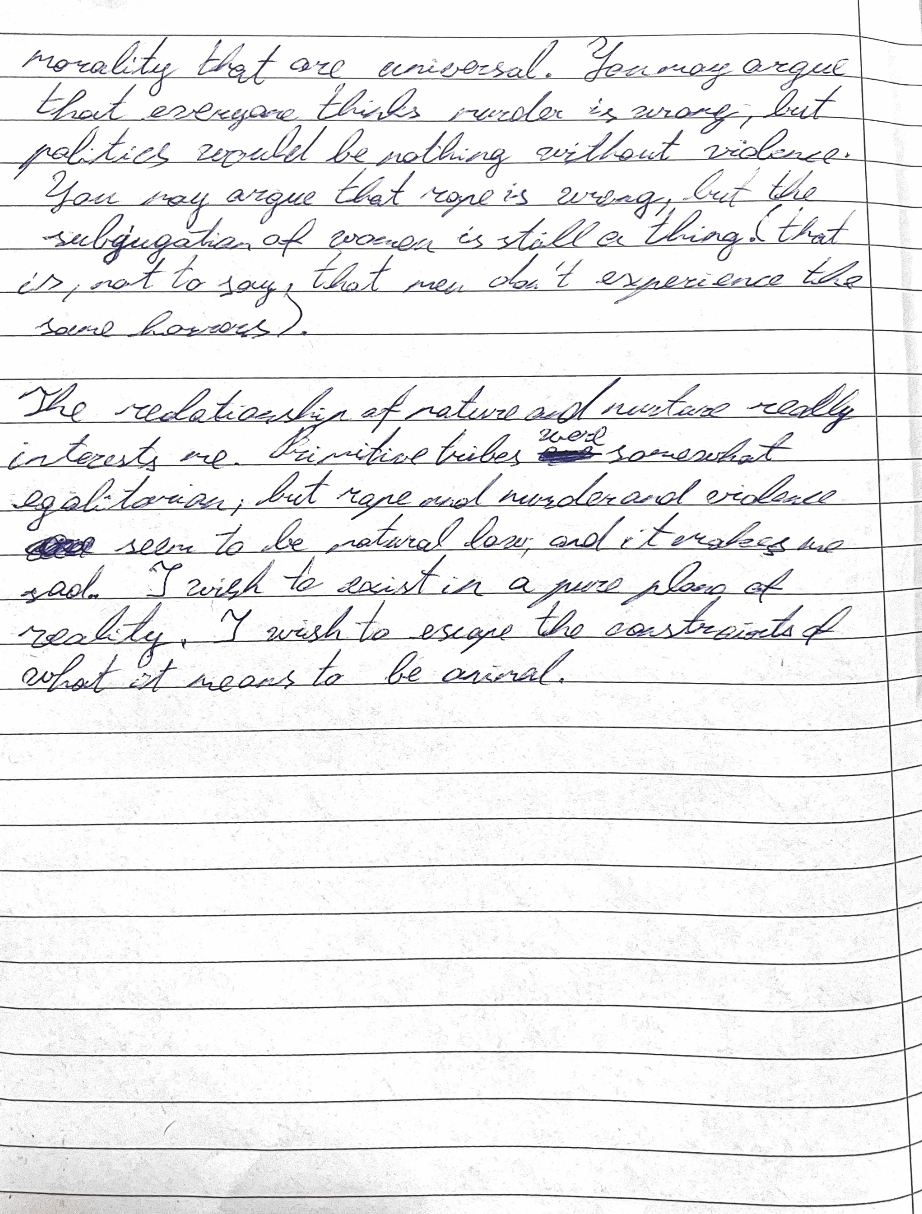 morality that are universal. You may argue
that everyone thinks murder is wrong, but
politics would be nothing without violence.
You may argue that rape is wrong, but the
subjugation of women is still a thing. (that
is, not to say, that men don't experience the
same horrors).
The relationship of nature and nurture really
interests me. Primitive tribes were somewhat
egalitarian, but rape and murder and violence
seem to be natural law, and it makes me
sad. I wish to exist in a pure plane of
reality. I wish to escape the constraints of
what it means to be animal.